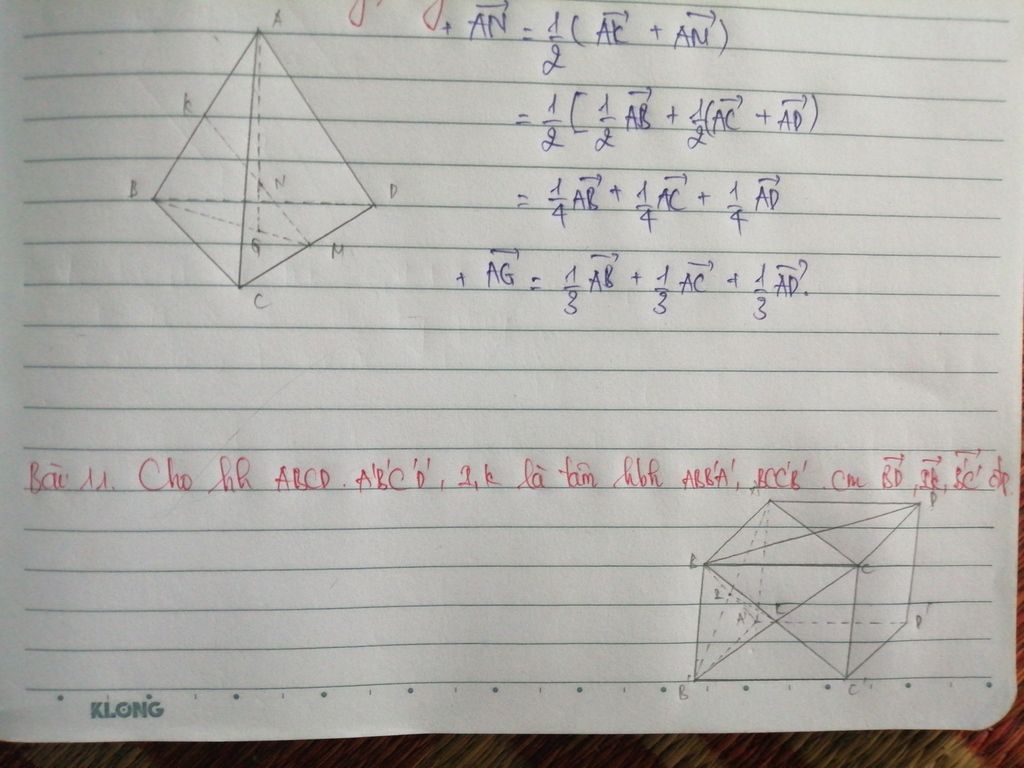 A
K
B
N
D
G
M
C
+ \overrightarrow{AN} = \frac{1}{2}(\overrightarrow{AK} + \overrightarrow{AM})
= \frac{1}{2}[\frac{1}{2}\overrightarrow{AB} + \frac{1}{2}(\overrightarrow{AC} + \overrightarrow{AD})
= \frac{1}{4}\overrightarrow{AB} + \frac{1}{4}\overrightarrow{AC} + \frac{1}{4}\overrightarrow{AD}
+ \overrightarrow{AG} = \frac{1}{3}\overrightarrow{AB} + \frac{1}{3}\overrightarrow{AC} + \frac{1}{3}\overrightarrow{AD}.
Bài 11. Cho hh ABCD.A'B'C'D', I, K là tâm hbh ABB'A', BCC'B' cm \overrightarrow{BD}, \overrightarrow{IK}, \overrightarrow{B'C'} đp
D
B
C
I
K
A'
D'
B'
C'
KLONG